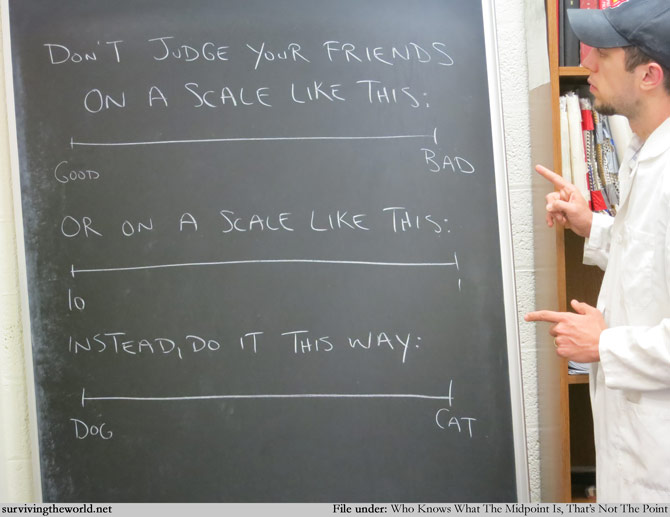 DON'T JUDGE YOUR FRIENDS
ON A SCALE LIKE THIS:
GOOD BAD
OR ON A SCALE LIKE THIS:
10 1
INSTEAD, DO IT THIS WAY:
DOG CAT
survivingtheworld.net File under: Who Knows What The Midpoint Is, That's Not The Point